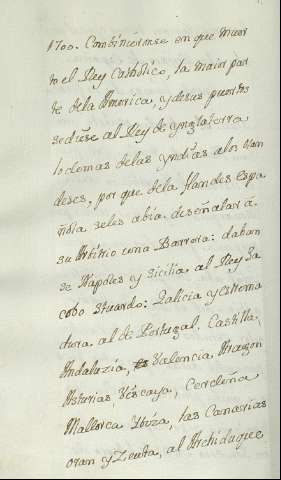 1700. Combinieronse en que muer
to el Rey Catholico, la maior par
te dela America, y desus puertos
sediese al Rey de ynglaterra
lo demas delas yndias alos olan
deses, por que dela flandes Espa
ñola seles abia deseñalar á
su Arbitrio una Barrera: daban
se Napoles y Sicilia al Rey Ja
cobo Stuardo: Galicia y estrema
dura al de Portugal. Castilla,
Andaluzia, Valencia, Aragon
Asturias, Viscaya, Cerdeña
Mallorca Ybiza, las Canarias
oran y Zeuta, al Archiduque